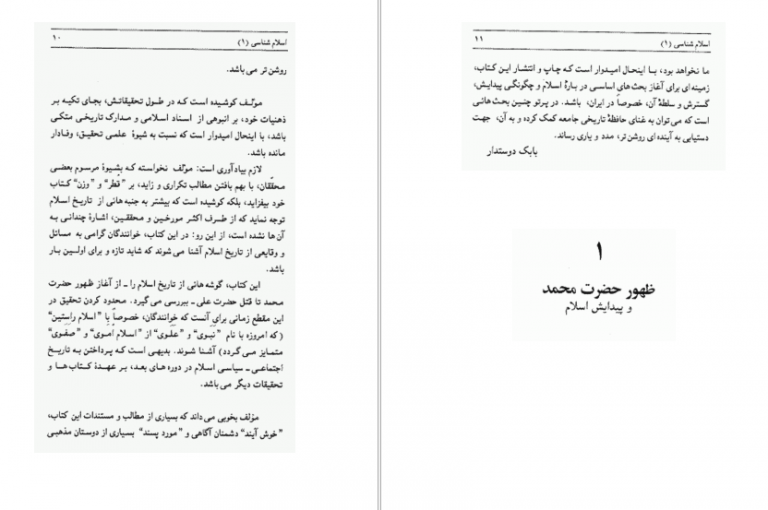 اسلام شناسی (۱)
۱۰
روشن تر می باشد.
مؤلف کوشیده است که در طول تحقیقاتش، بجای تکیه بر
ذهنیات خود، بر انبوهی از اسناد اسلامی و مدارک تاریخی متکی
باشد، با اینحال امیدوار است که نسبت به شیوهٔ علمی تحقیق، وفادار
مانده باشد.
لازم بیادآوری است: مؤلف نخواسته که بشیوهٔ مرسوم بعضی
محقّقان، با بهم بافتن مطالب تکراری و زاید، بر "قطر" و "وزن" کتاب
خود بیفزاید، بلکه کوشیده است که بیشتر به جنبه هائی از تاریخ اسلام
توجه نماید که از طرف اکثر مورخین و محققین، اشارهٔ چندانی به
آن ها نشده است، از این رو: در این کتاب، خوانندگان گرامی به مسائل
و وقایعی از تاریخ اسلام آشنا می شوند که شاید تازه و برای اولین بار
باشد.
این کتاب، گوشه هائی از تاریخ اسلام را ـ از آغاز ظهور حضرت
محمد تا قتل حضرت علی ـ بررسی می گیرد. محدود کردن تحقیق در
این مقطع زمانی برای آنست که خوانندگان، خصوصاً با "اسلام راستین"
(که امروزه با نام "نَبَوی" و "عَلَوی" از "اسلام اُموی" و "صفَوی"
متمایز می گردد) آشنا شوند. بدیهی است که پرداختن به تاریخ
اجتماعی ـ سیاسی اسلام در دوره های بعد، بر عهدهٔ کتاب ها و
تحقیقات دیگر می باشد.
مؤلف بخوبی می داند که بسیاری از مطالب و مستندات این کتاب،
"خوش آیند" دشمنان آگاهی و "مورد پسند" بسیاری از دوستان مذهبی
اسلام شناسی (۱)
۱۱
ما نخواهد بود، با اینحال امیدوار است که چاپ و انتشار این کتاب،
زمینه ای برای آغاز بحث های اساسی در بارهٔ اسلام و چگونگی پیدایش،
گسترش و سلطهٔ آن، خصوصاً در ایران، باشد. در پرتو چنین بحث هائی
است که می توان به غنای حافظهٔ تاریخی جامعه کمک کرده و به آن، جهت
دستیابی به آینده ای روشن تر، مدد و یاری رساند.
بابک دوستدار
۱
ظهور حضرت محمد
و پیدایش اسلام